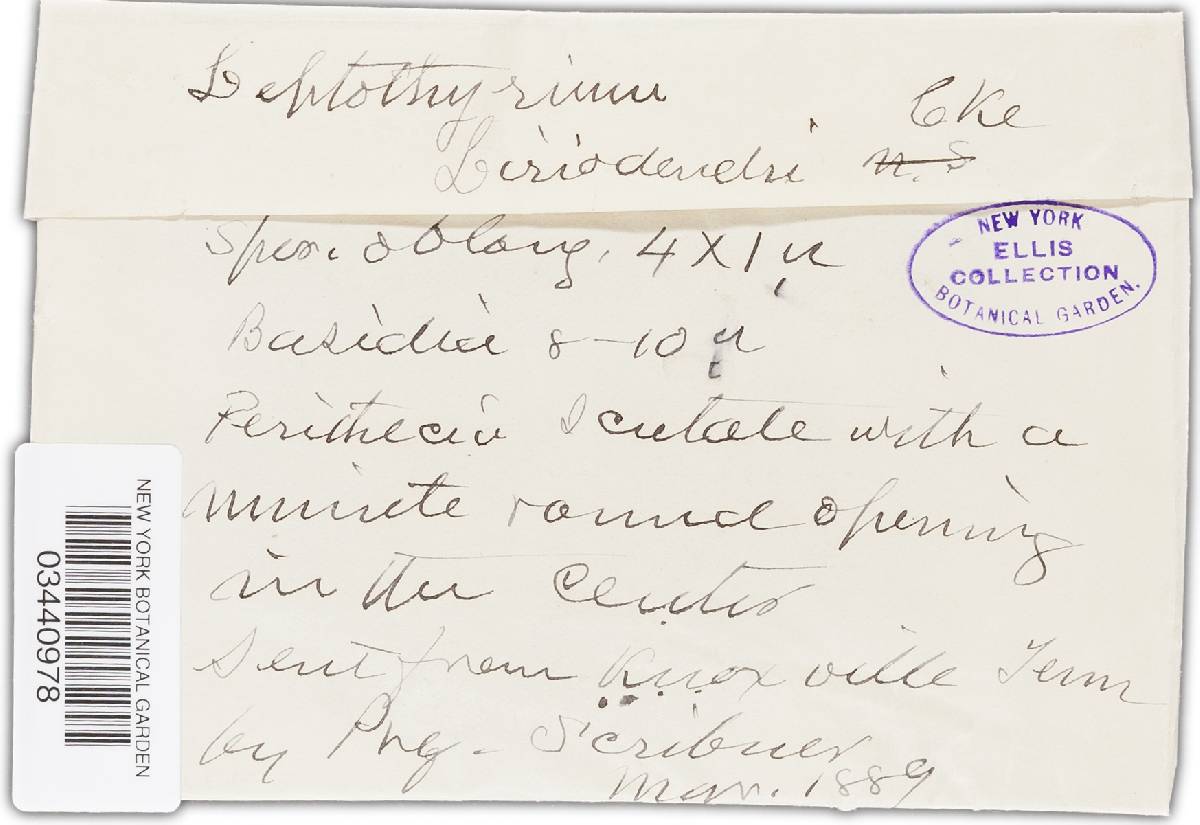 Leptothyrium
Cke
Liriodendri n.s
Spor. oblong. 4 x 1 µ
Basidia 8-10 µ
Perithecia Scutate with a
minute round opening
in the center
Sent from Knoxville Tenn
by Prof. Scribner
Mar. 1889
NEW YORK
ELLIS
COLLECTION
BOTANICAL GARDEN.
NEW YORK BOTANICAL GARDEN
03440978